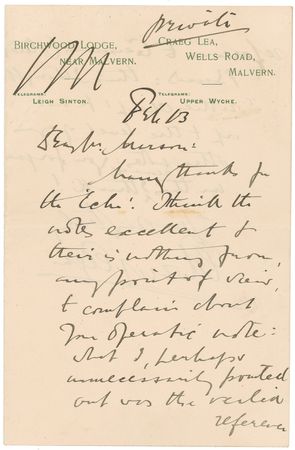 private
BIRCHWOOD LODGE,
NEAR MALVERN.
CRAEG LEA,
WELLS ROAD,
MALVERN.
TELEGRAMS:
LEIGH SINTON.
TELEGRAMS:
UPPER WYCHE.
Feb 13
Dear Mr
Many thanks for
the 'Echo'. I think the
notes excellent &
there is nothing from,
any point of view,
to complain about
your operatic note:
what I, perhaps
unnecessarily pointed
out was the earlier
reference